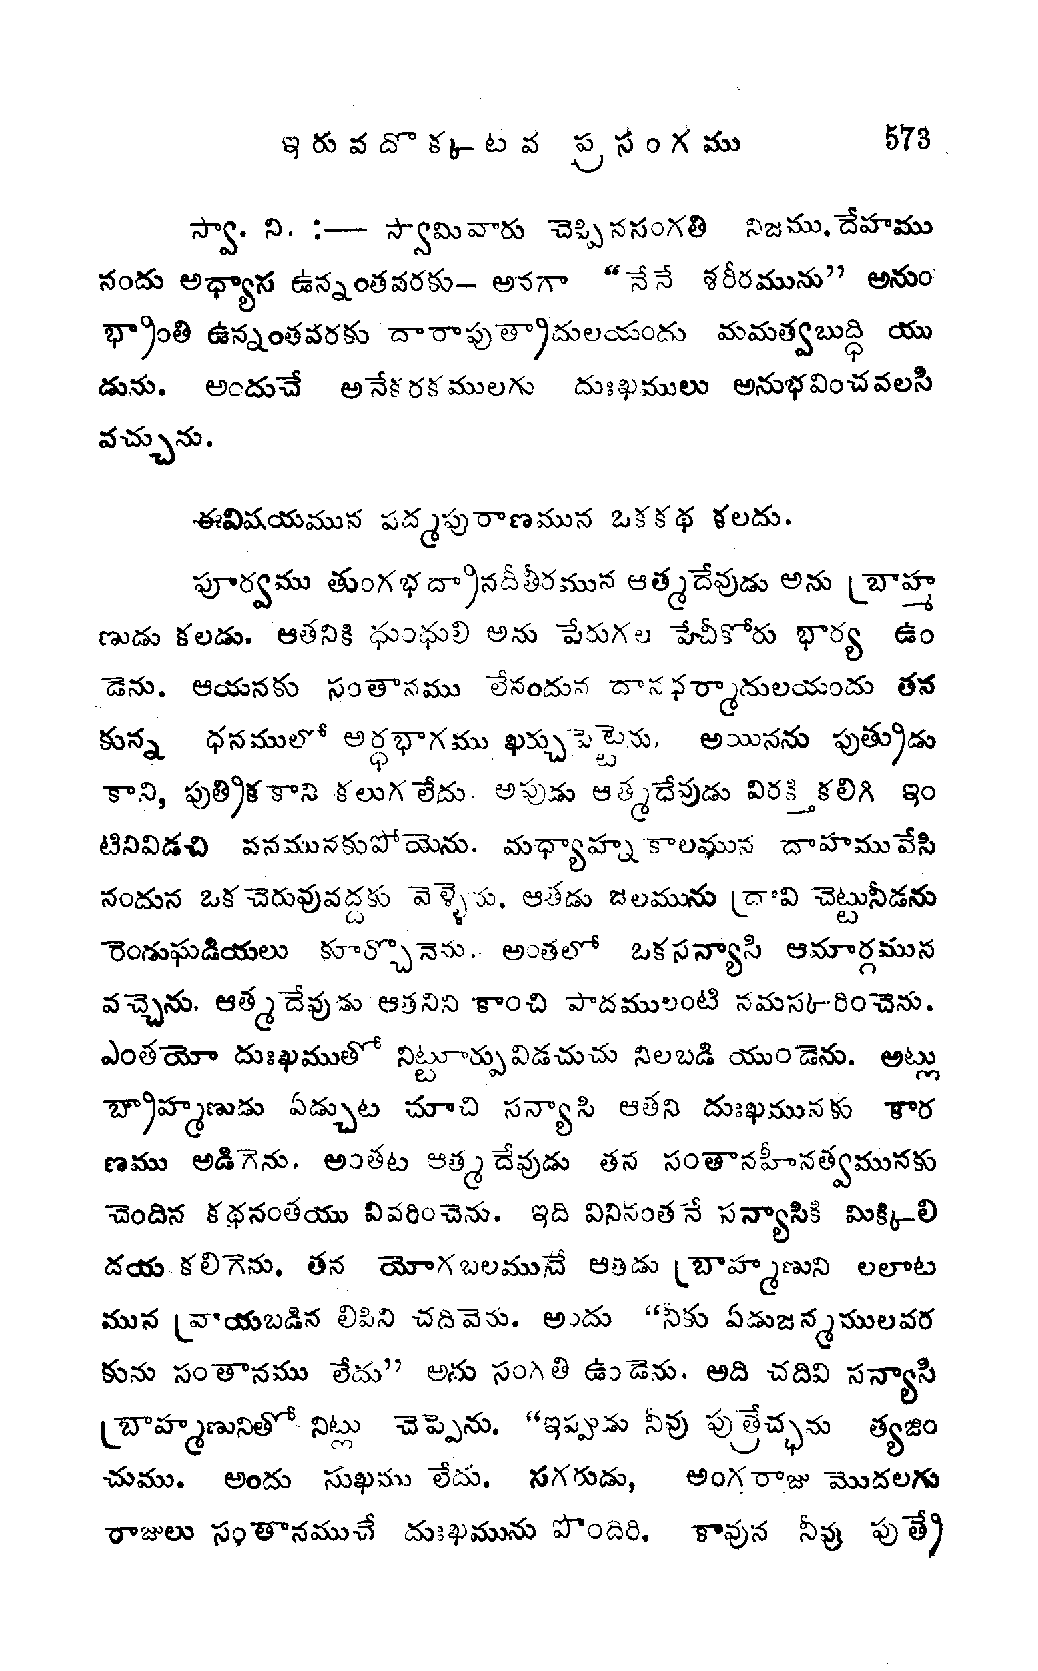 ఇరువదొకటవ ప్రసంగము 573
స్వా. ని. :— స్వామివారు చెప్పినసంగతి నిజము. దేహము
నందు అధ్యాస ఉన్నంతవరకు— అనగా “నేనే శరీరమును” అనుం
భ్రాంతి ఉన్నంతవరకు దారాపుత్రాదులయందు మమత్వబుద్ధి యు
డును. అందుచే అనేకరకములగు దుఃఖములు అనుభవించవలసి
వచ్చును.
ఈవిషయమున పద్మపురాణమున ఒకకథ కలదు.
పూర్వము తుంగభద్రానదీతీరమున ఆత్మదేవుడు అను బ్రాహ్మ
ణుడు కలడు. ఆతనికి ధుంధులి అను పేరుగల పేచీకోరు భార్య ఉం
డెను. ఆయనకు సంతానము లేనందున దానధర్మాదులయందు తన
కున్న ధనములో అర్ధభాగము ఖర్చుపెట్టెను. అయినను పుత్రుడు
కాని, పుత్రికకాని కలుగలేదు. అపుడు ఆత్మదేవుడు విరక్తికలిగి ఇం
టినివిడచి వనమునకుపోయెను. మధ్యాహ్నకాలమున దాహమువేసి
నందున ఒకచెరువువద్దకు వెళ్ళెను. ఆతడు జలమును ద్రావి చెట్టునీడను
రెండుఘడియలు కూర్చొనెను. అంతలో ఒకసన్యాసి ఆమార్గమున
వచ్చెను. ఆత్మదేవుడు ఆతనిని కాంచి పాదములంటి నమస్కరించెను.
ఎంతయో దుఃఖముతో నిట్టూర్పువిడచుచు నిలబడి యుండెను. అట్లు
బ్రాహ్మణుడు ఏడ్చుట చూచి సన్యాసి ఆతని దుఃఖమునకు కార
ణము అడిగెను. అంతట ఆత్మదేవుడు తన సంతానహీనత్వమునకు
చెందిన కథనంతయు వివరించెను. ఇది వినినంతనే సన్యాసికి మిక్కిలి
దయ కలిగెను. తన యోగబలముచే ఆతడు బ్రాహ్మణుని లలాట
మున వ్రాయబడిన లిపిని చదివెను. అందు “నీకు ఏడుజన్మములవర
కును సంతానము లేదు” అను సంగతి ఉండెను. అది చదివి సన్యాసి
బ్రాహ్మణునితో నిట్లు చెప్పెను. “ఇప్పుడు నీవు పుత్రేచ్ఛను త్యజిం
చుము. అందు సుఖము లేదు. సగరుడు, అంగరాజు మొదలగు
రాజులు సంతానముచే దుఃఖమును పొందిరి. కావున నీవు పుత్రే